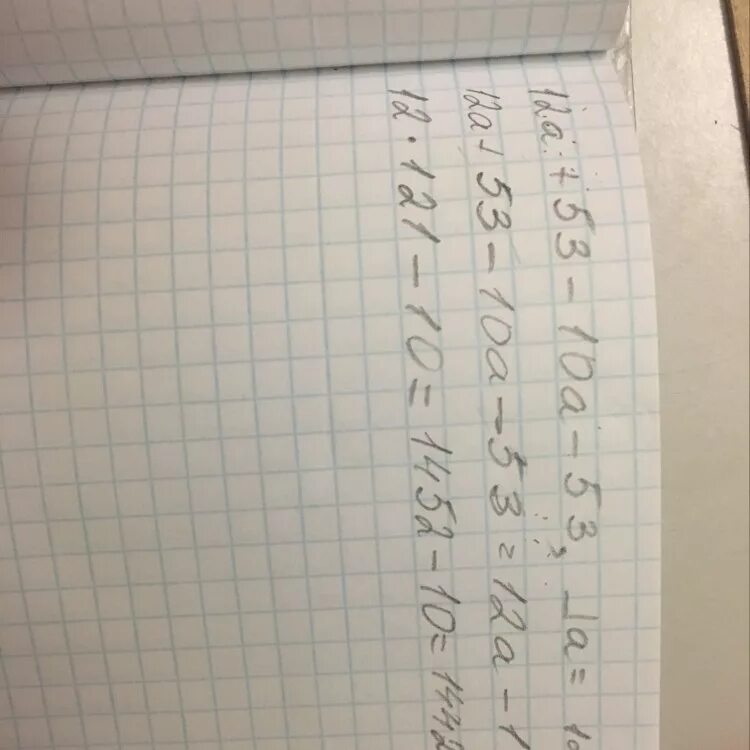 12a + 53 - 10a - 53, a = 1
12a + 53 - 10a - 53 = 12a - 1
12 · 121 - 10 = 1452 - 10 = 1442